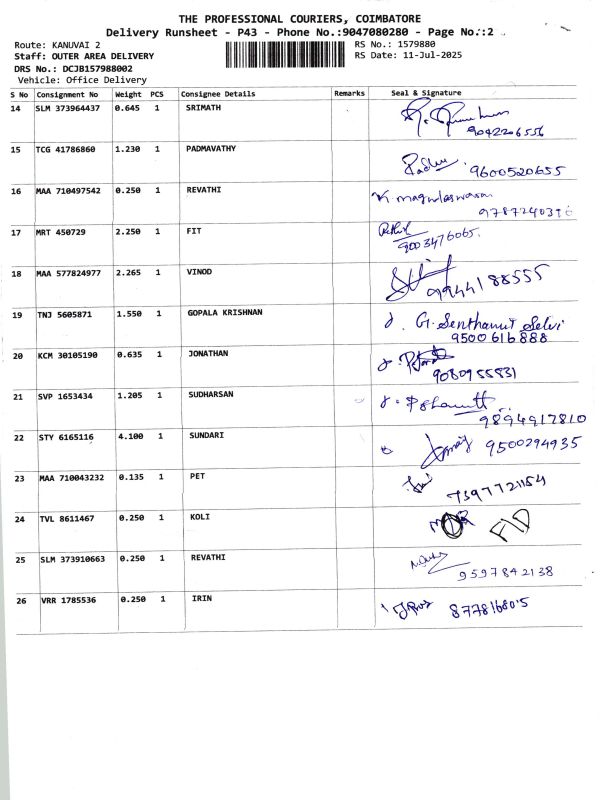 THE PROFESSIONAL COURIERS, COIMBATORE
Delivery Runsheet - P43 - Phone No.:9047080280 - Page No.:2
Route: KANUVAI 2
RS No.: 1579880
Staff: OUTER AREA DELIVERY
RS Date: 11-Jul-2025
DRS No.: DCJB157988002
Vehicle: Office Delivery
S No Consignment No Weight PCS Consignee Details Remarks Seal & Signature
14 SLM 373964437 0.645 1 SRIMATH
9042206556
15 TCG 41786860 1.230 1 PADMAVATHY
9600520655
16 MAA 710497542 0.250 1 REVATHI
17 MRT 450729 2.250 1 FIT
9003476065.
18 MAA 577824977 2.265 1 VINOD
9944188555
19 TNJ 5605871 1.550 1 GOPALA KRISHNAN
G. Senthamil Selvi
9500616888
20 KCM 30105190 0.635 1 JONATHAN
9080955831
21 SVP 1653434 1.205 1 SUDHARSAN
9894917810
22 STY 6165116 4.100 1 SUNDARI
9500294935
23 MAA 710043232 0.135 1 PET
7397721154
24 TVL 8611467 0.250 1 KOLI
25 SLM 373910663 0.250 1 REVATHI
9597842138
26 VRR 1785536 0.250 1 IRIN